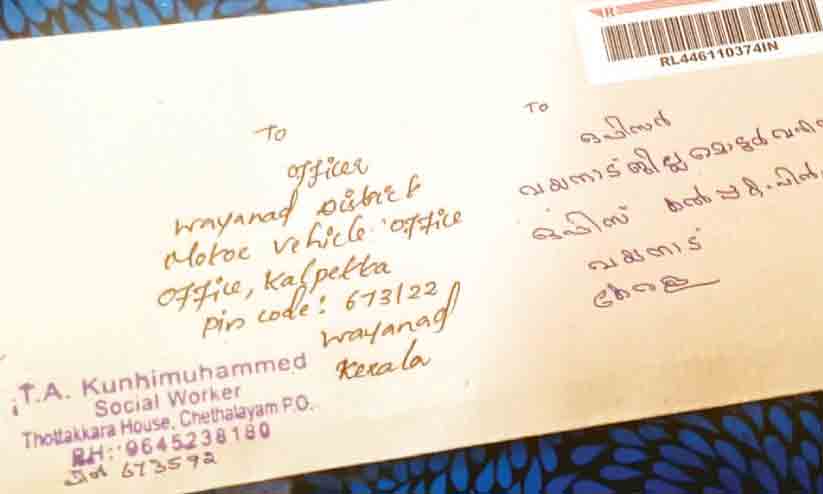 R
RL446110374IN
To
officer
Wayanad District
Motor vehicle office
office, Kalpetta
Pin code: 673122
Wayanad
Kerala
To
ഓഫീസർ
വയനാട് ജില്ല മോട്ടോർ
ഓഫീസ് കൽപ്പറ്റ
വയനാട്
കേരള
T.A. Kunhimuhammed
Social Worker
Thottakkara House, Chethalayam P.O.
PH: 9645238180
പിൻ 673592